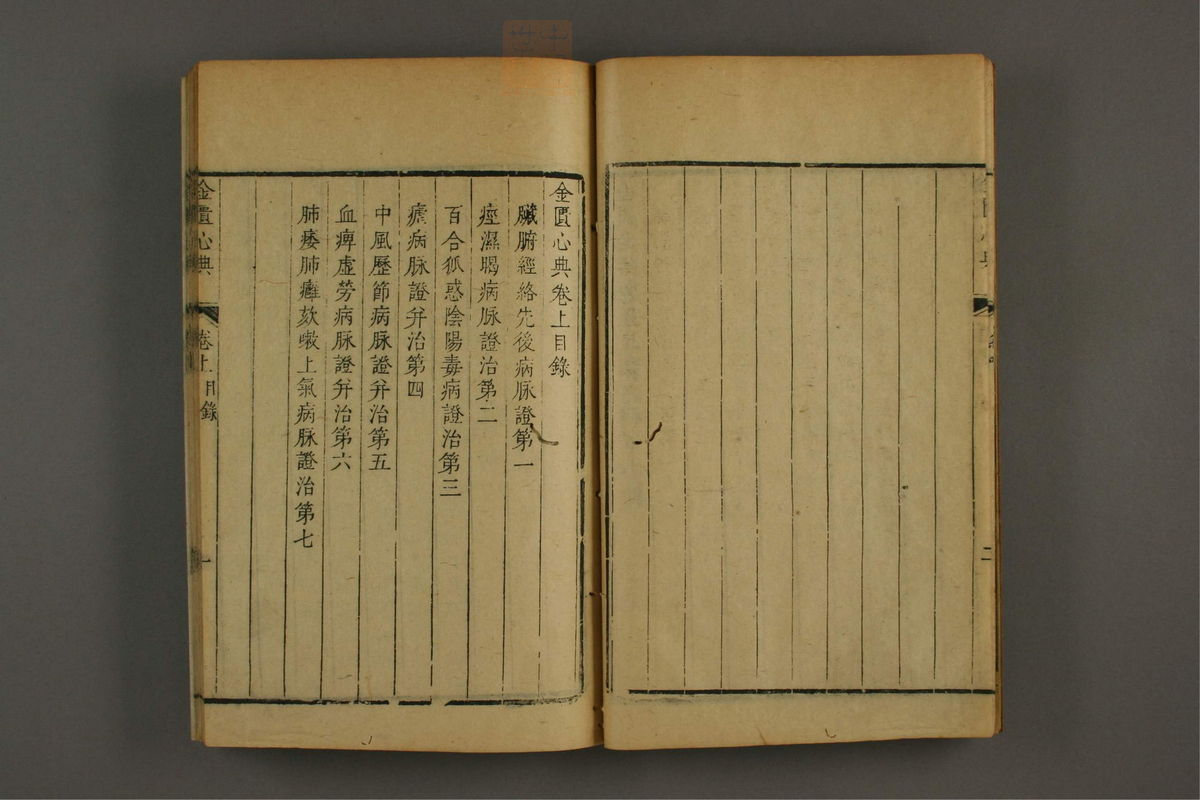 金匱心典卷上目錄
臟腑經絡先後病脉證第一
痙濕暍病脉證治第二
百合狐惑陰陽毒病證治第三
瘧病脉證并治第四
中風歷節病脉證并治第五
血痺虛勞病脉證并治第六
肺痿肺癰欬嗽上氣病脉證治第七
金匱心典 卷上目錄 一
二